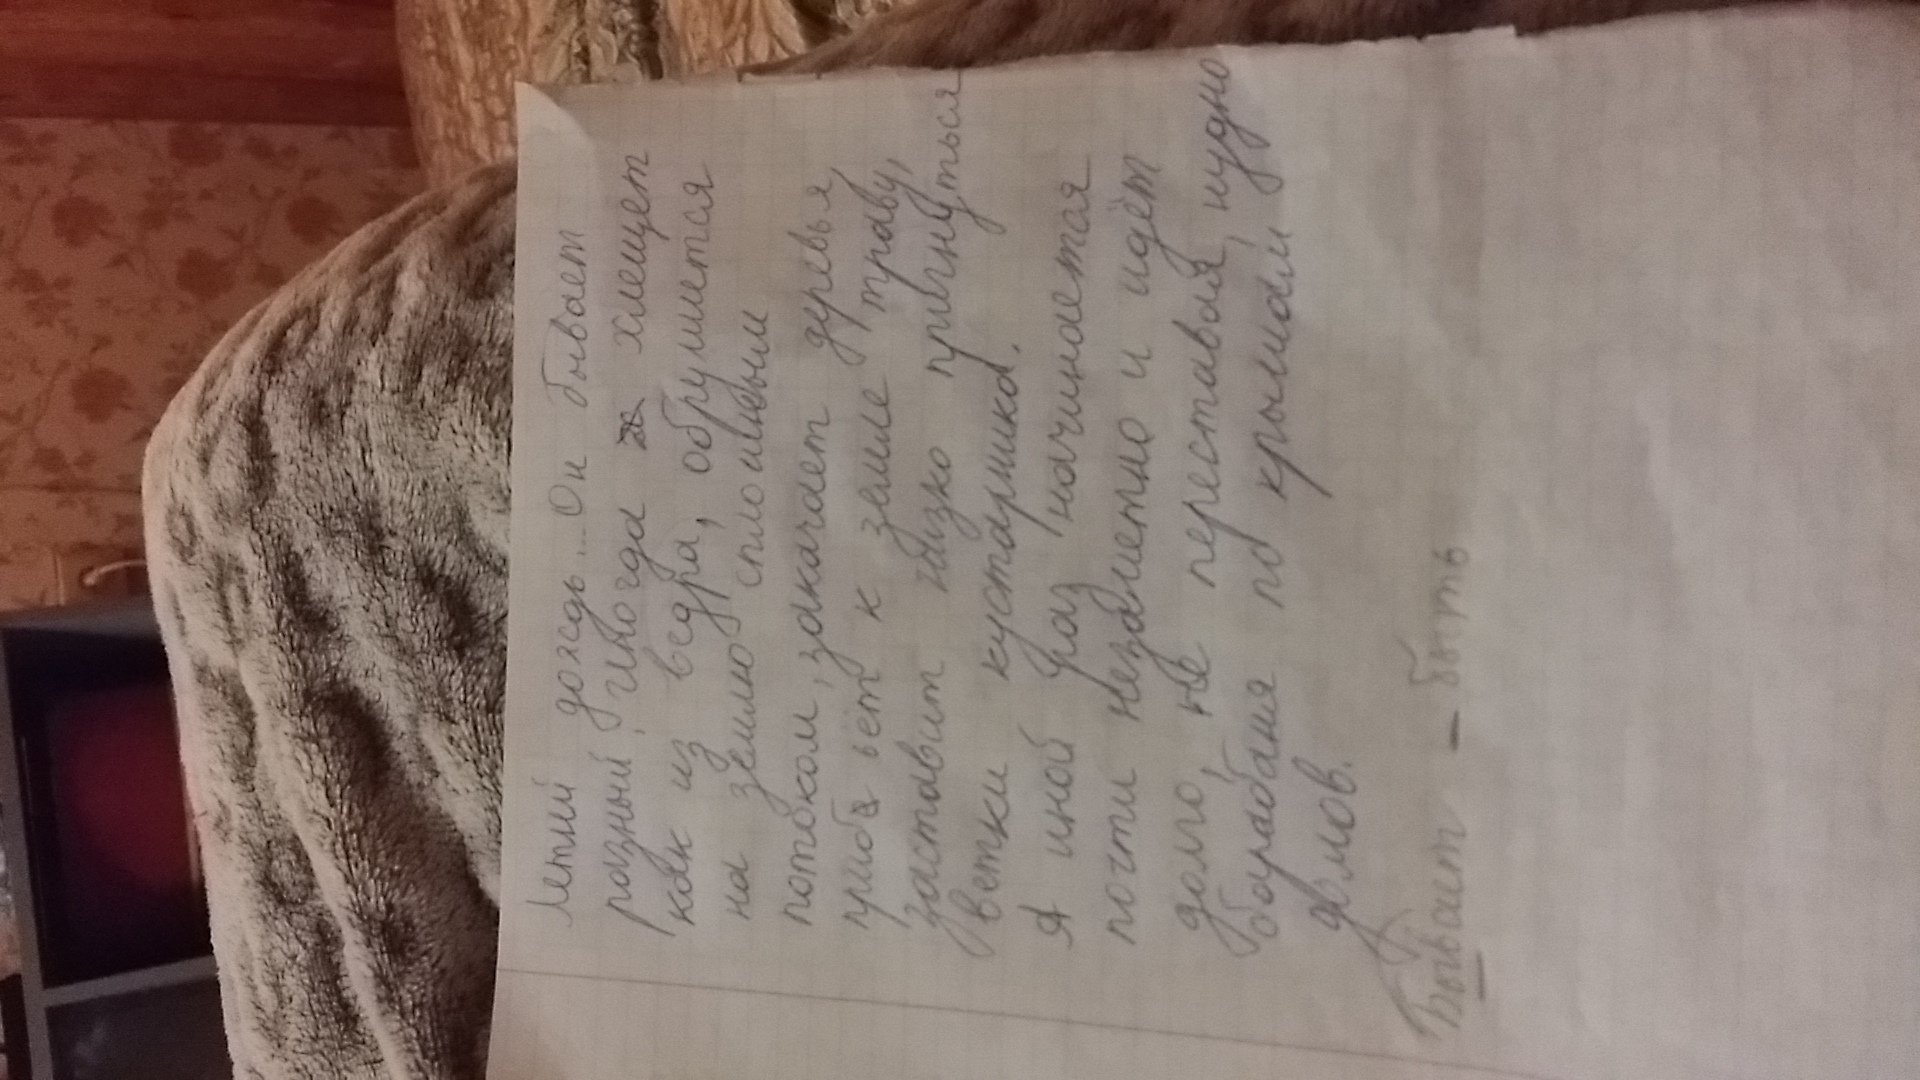 Летний дождь... Он бывает
разный. Иногда хлещет
как из ведра, обрушится
на землю сплошным
потоком, закачает деревья,
прибьёт к земле траву,
заставит низко пригнуться
ветки кустарника.
А иной раз начинается
почти незаметно и идёт
долго, не переставая, нудно
барабаня по крышам
домов.
Бывает - быть